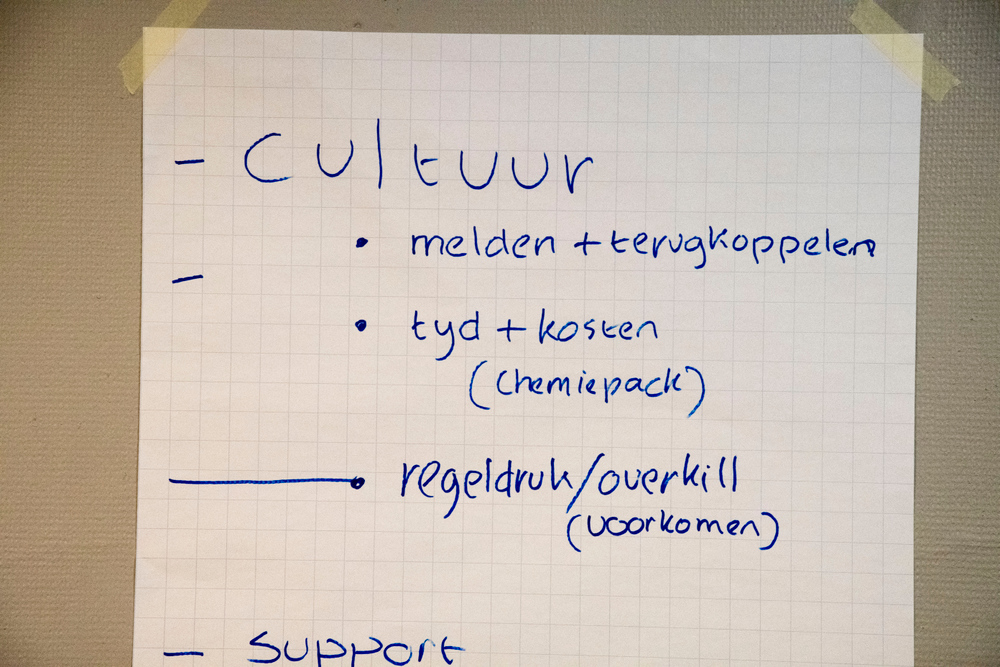 - Cultuur
• melden + terugkoppelen
-
• tyd + kosten
(Chemiepack)
• regeldruk/overkill
(voorkomen)
- Support